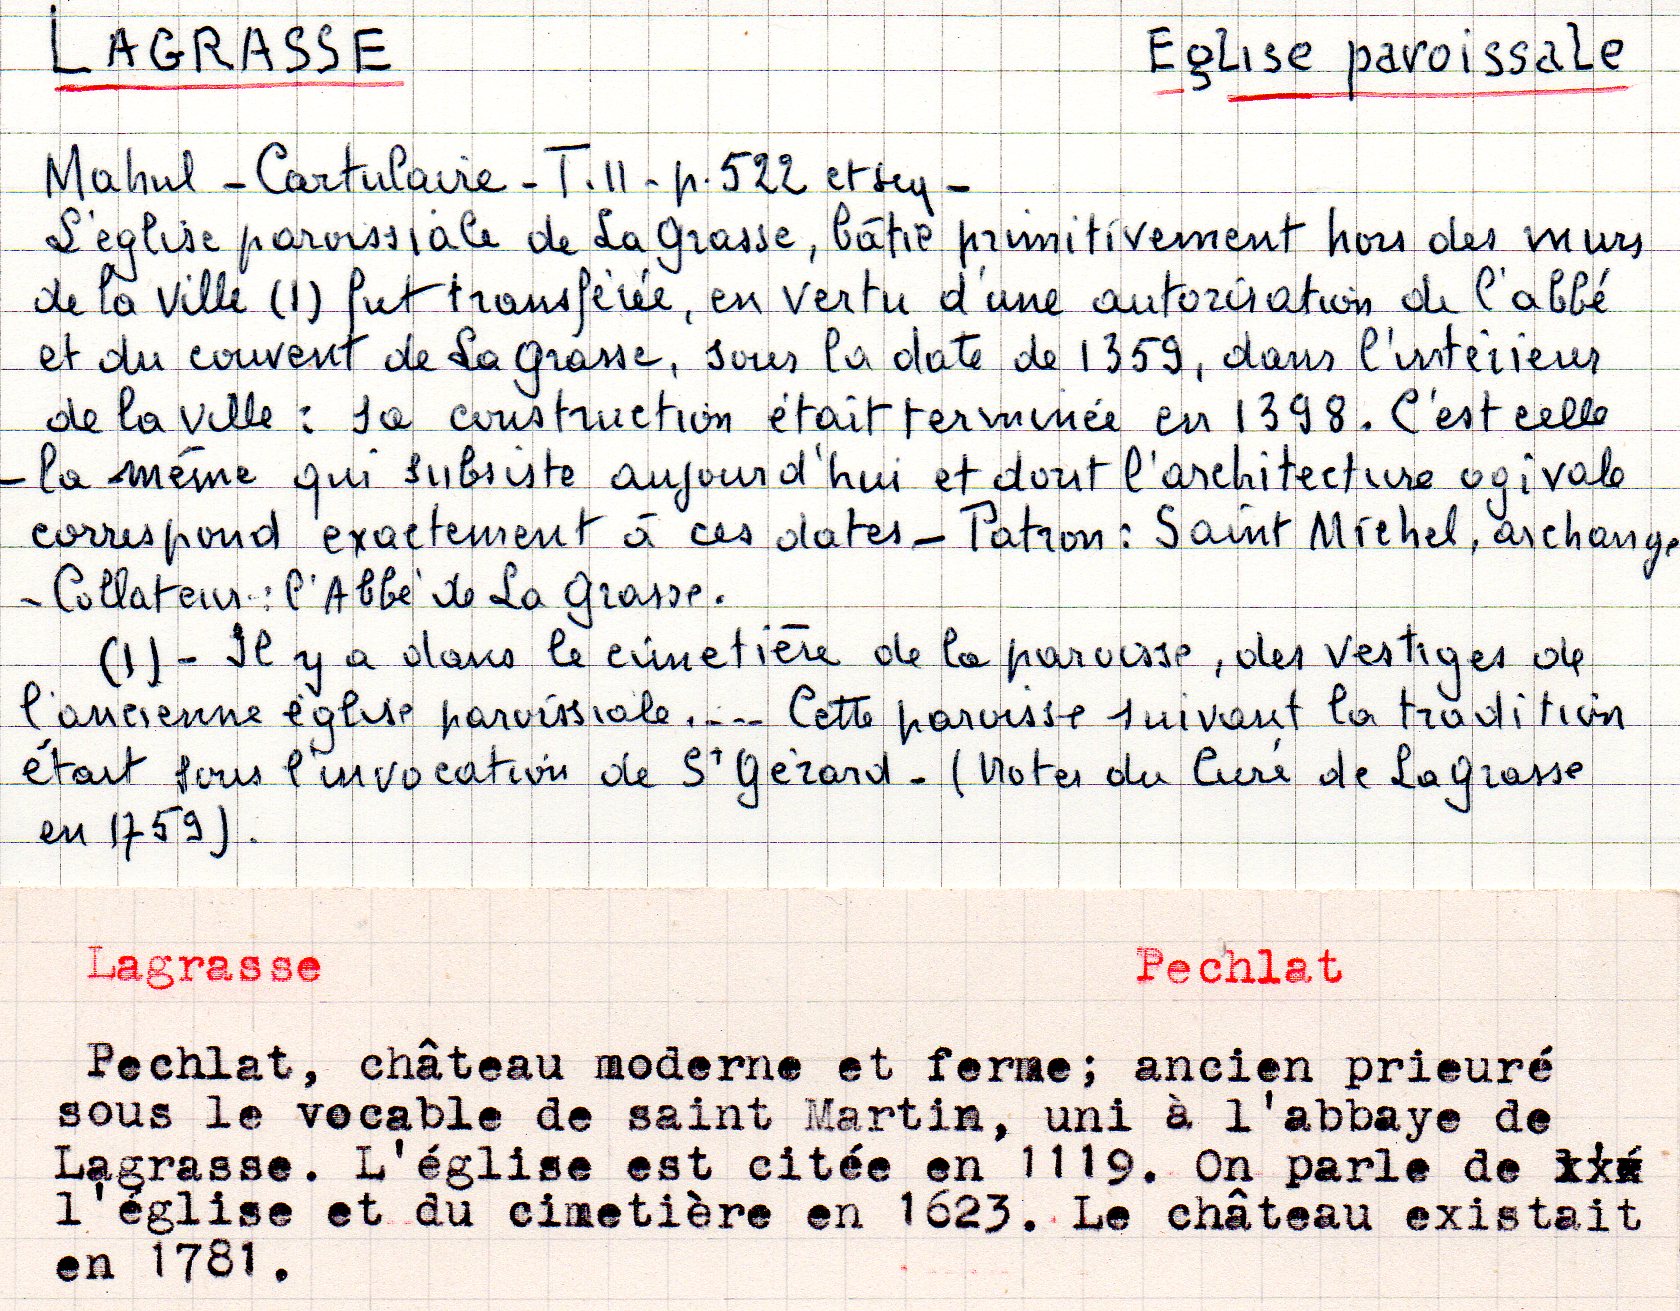 LAGRASSE Eglise paroissale
Mahul - Cartulaire - T.II - p. 522 et seq -
L'église paroissiale de La Grasse, bâtie primitivement hors des murs
de la ville (1) fut transférée, en vertu d'une autorisation de l'abbé
et du couvent de La Grasse, sous la date de 1359, dans l'intérieur
de la ville : sa construction était terminée en 1398. C'est celle
-la même qui subsiste aujourd'hui et dont l'architecture ogivale
correspond exactement à ces dates - Patron : Saint Michel, archange
- Collateur : l'Abbé de La Grasse.
(1) - Il y a dans le cimetière de la paroisse, des vestiges de
l'ancienne église paroissiale. ---- Cette paroisse suivant la tradition
était sous l'invocation de St Gérard - (Notes du Curé de La Grasse
en 1759).
Lagrasse Pechlat
Pechlat, château moderne et ferme; ancien prieuré
sous le vocable de saint Martin, uni à l'abbaye de
Lagrasse. L'église est citée en 1119. On parle de
l'église et du cimetière en 1623. Le château existait
en 1781.